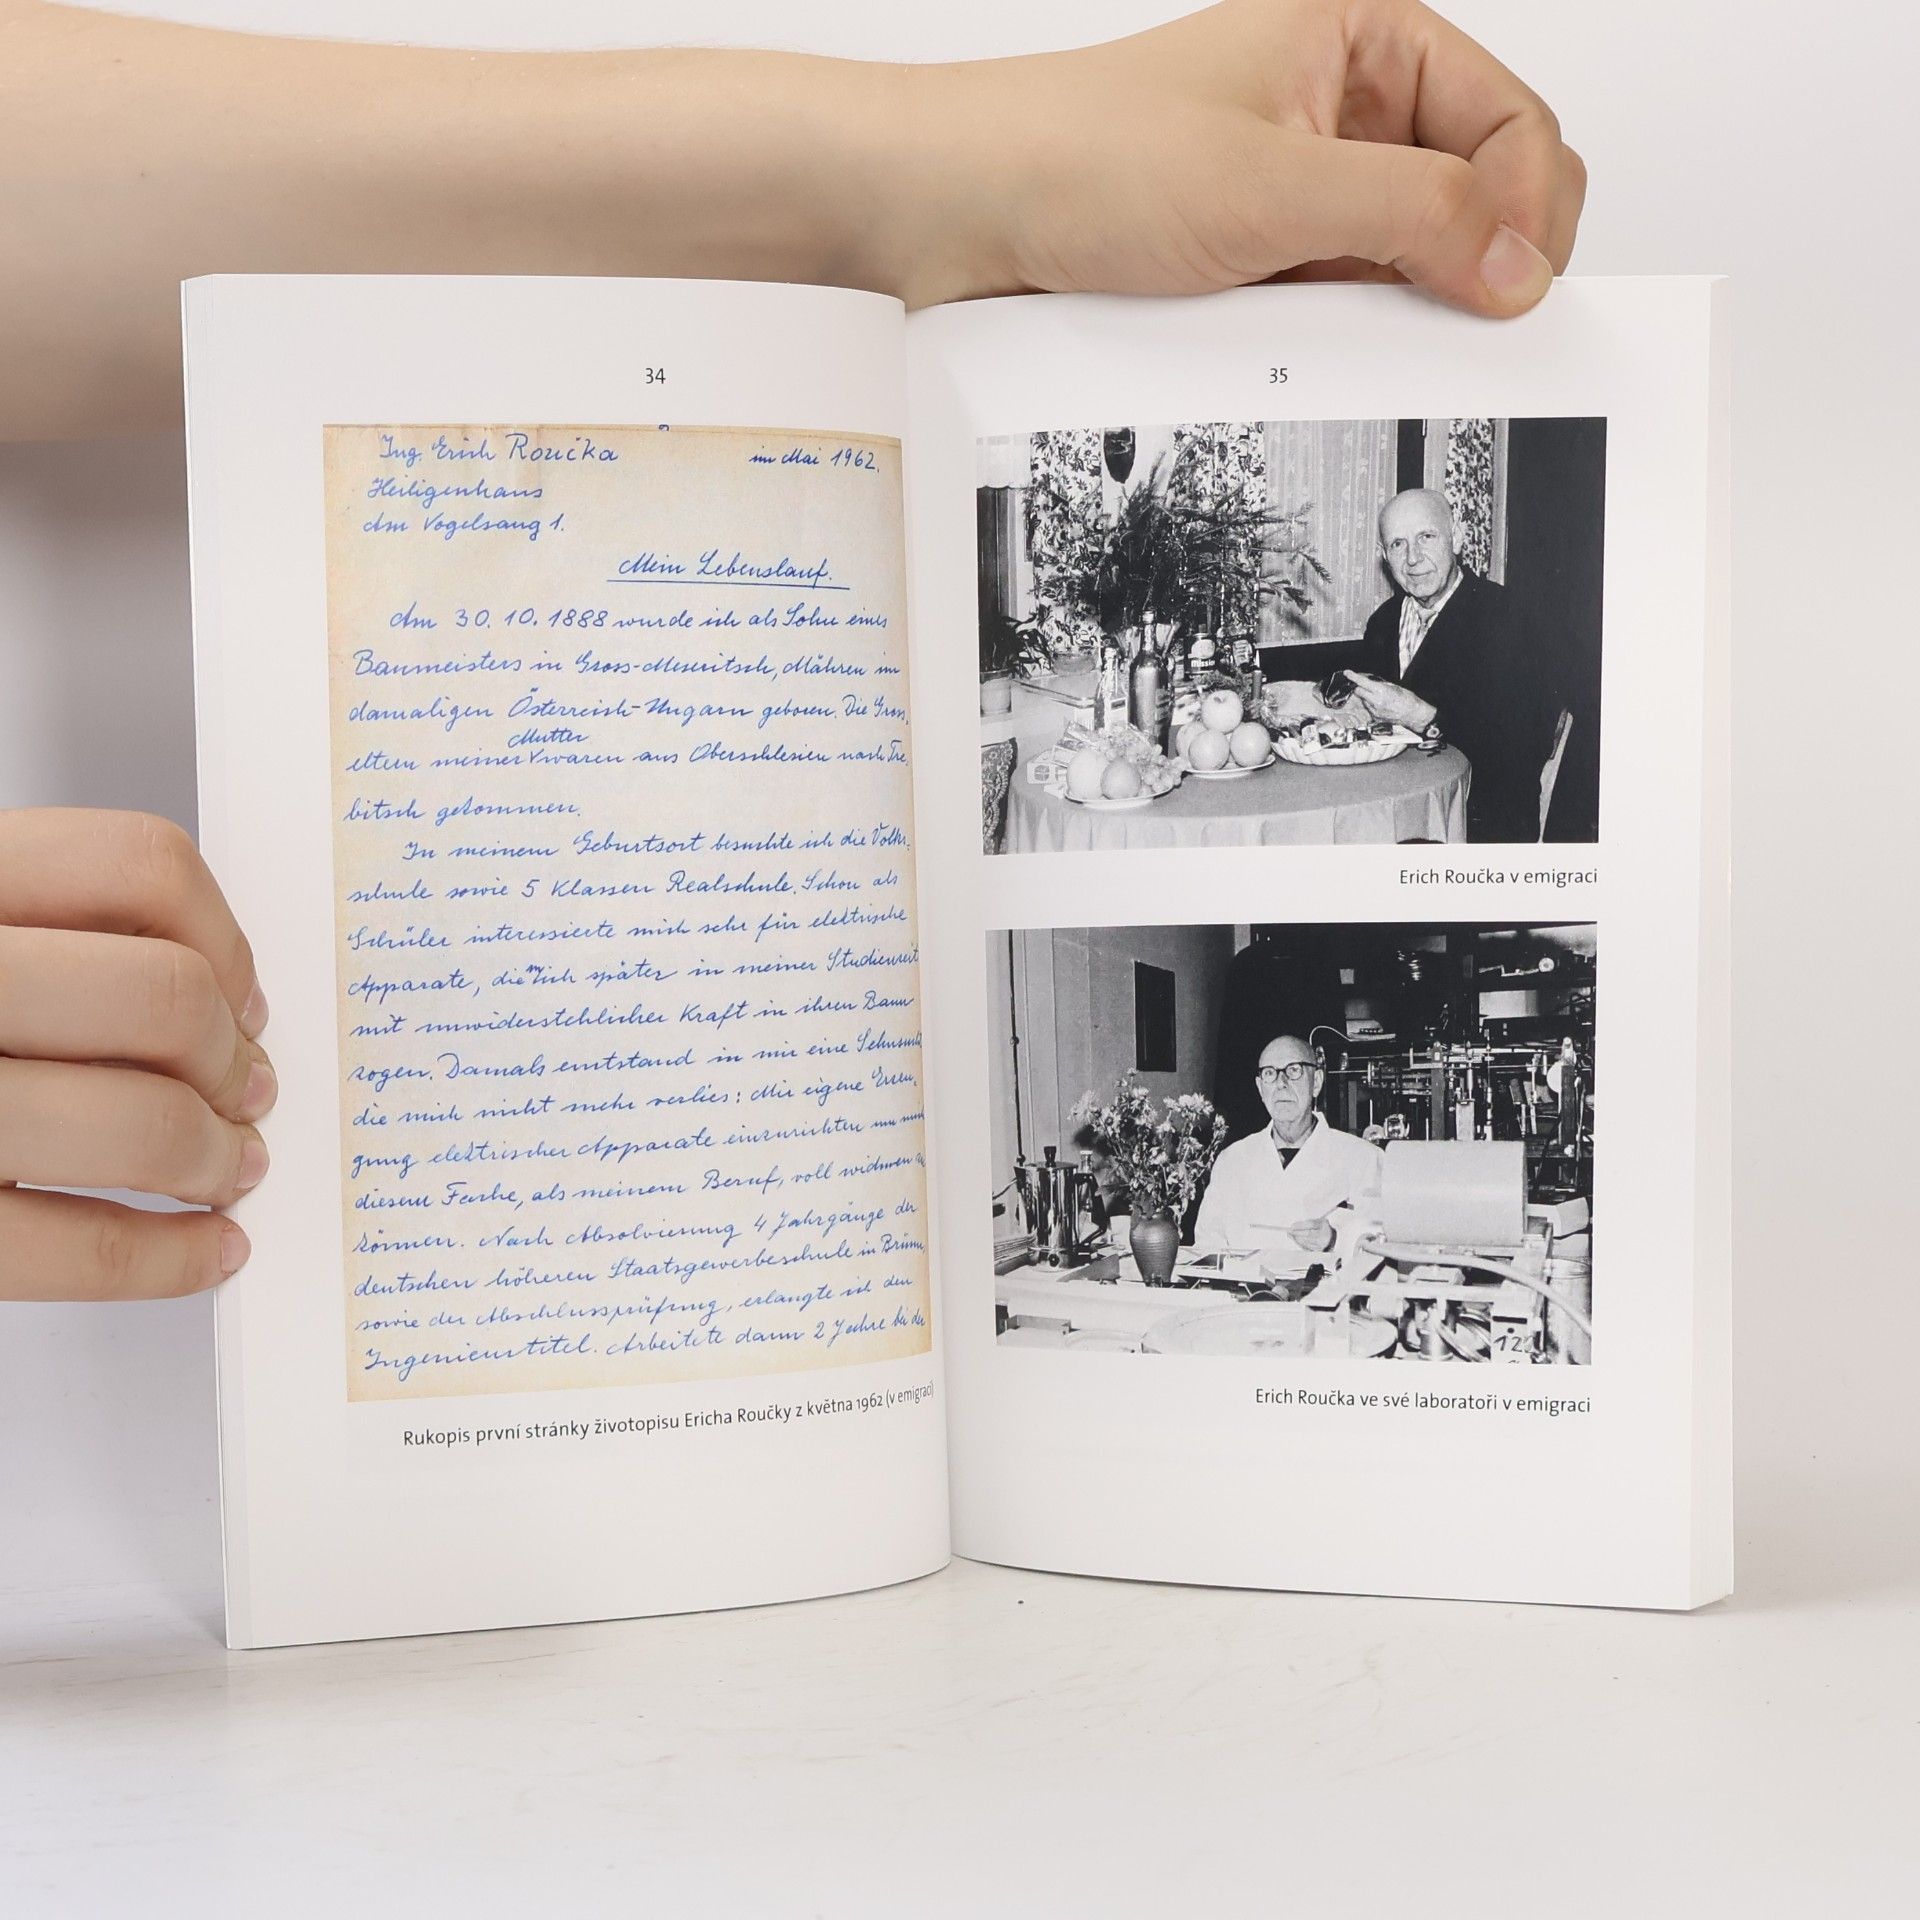 34
Ing. Erich Roučka im Mai 1962.
Heiligenhaus
Am Vogelsang 1.
Mein Lebenslauf.
Am 30. 10. 1888 wurde ich als Sohn eines
Baumeisters in Gross-Meseritsch, Mähren im
damaligen Österreich-Ungarn geboren. Die Gross-
Mutter
eltern meiner waren aus Oberschlesien nach Tre-
bitsch gekommen.
In meinem Geburtsort besuchte ich die Volks-
schule sowie 5 Klassen Realschule. Schon als
Schüler interessierte mich sehr für elektrische
Apparate, die mich später in meiner Studienzeit
mit unwiderstehlicher Kraft in ihren Bann
zogen. Damals entstand in mir eine Sehnsucht,
die mich nicht mehr verlies: Mir eigene Erzeu-
gung elektrischer Apparate einzurichten um mich
diesem Fache, als meinem Beruf, voll widmen zu
können. Nach Absolvierung 4 Jahrgänge der
deutschen höheren Staatsgewerbeschule in Brünn,
sowie der Abschlussprüfung, erlangte ich den
Ingenieurtitel. Arbeitete dann 2 Jahre bei der
Rukopis první stránky životopisu Ericha Roučky z května 1962 (v emigraci)
35
Missio
Erich Roučka v emigraci
122
Erich Roučka ve své laboratoři v emigraci